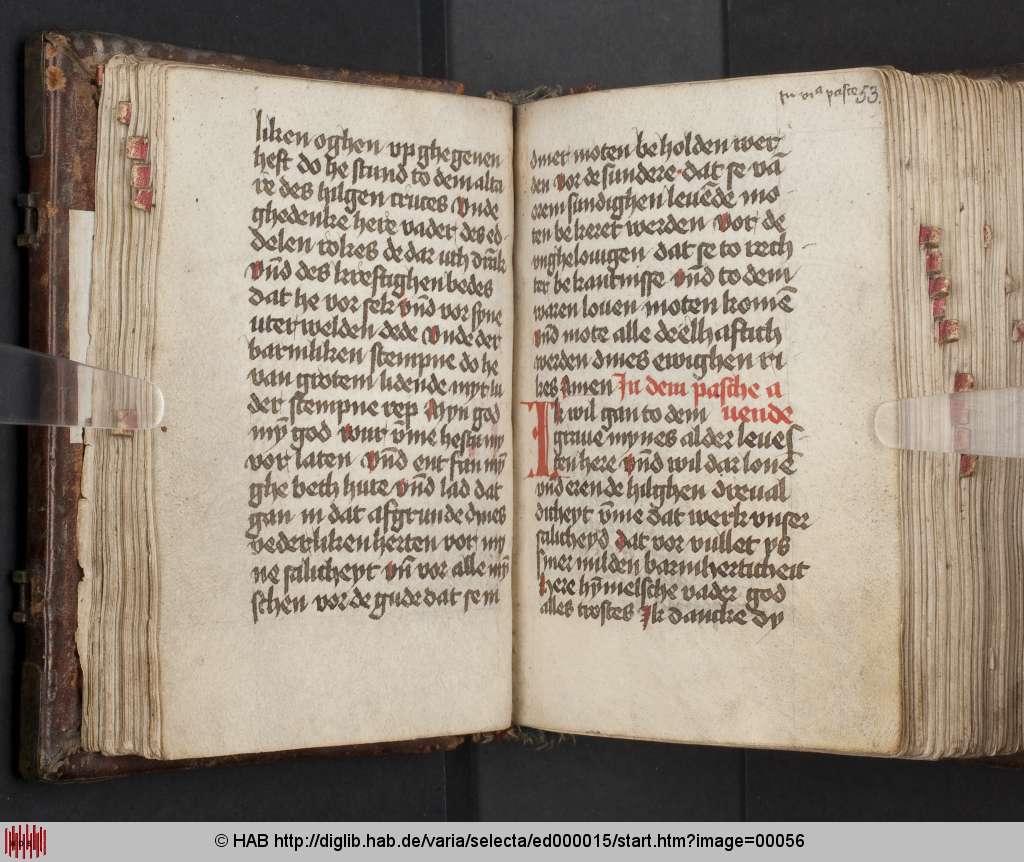 liken oghen up ghegeuen
heft do he stund to dem alta
re des hilgen cruces Vnde
ghedenke here vader des ed
delen rokes de dar uth
Vn̄d des kreftighen bedes
dat he vor sek vn̄d vor syne
uter welden dede Vnde der
barmliken stempne do he
van grotem lidende myt lu
der stempne rep Myn god
my god wur vm̄e hestu my
vor laten Vn̄d ent fan mȳ
ghe beth hute Vn̄d lad dat
gan in dat afgrunde dines
vederliken herten vor my
ne salicheyt vn̄ vor alle mȳ
schen vor de gude dat se in
diner moten beholden wer
den Vor de sundere dat se vā
orem sundighen leuēde mo
ten bekeret werden Vor de
vnghelouigen dat se to rech
ter bekantnisse Vn̄d to dem
waren louen moten komē
Vn̄d mote alle deelhaftich
werden dines ewighen ri
kes Amen In dem pasche a
uende
Ik wil gan to dem
graue mynes alder leues
ten here Vn̄d wil dar louē
vnd eren de hilghen dreual
dicheyt vm̄e dat werk vnser
salicheyd dat vor vullet ys
siner milden barmherticheit
here hȳmelsche vader god
alles trostes Ik dancke dy
In vi^a pasce 53.
© HAB http://diglib.hab.de/varia/selecta/ed000015/start.htm?image=00056